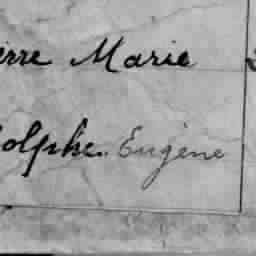 erre Marie
olphe Eugène